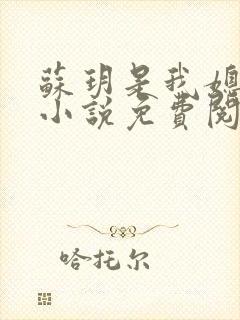 蘇玥是我媳
小說免費閱
哈托尔